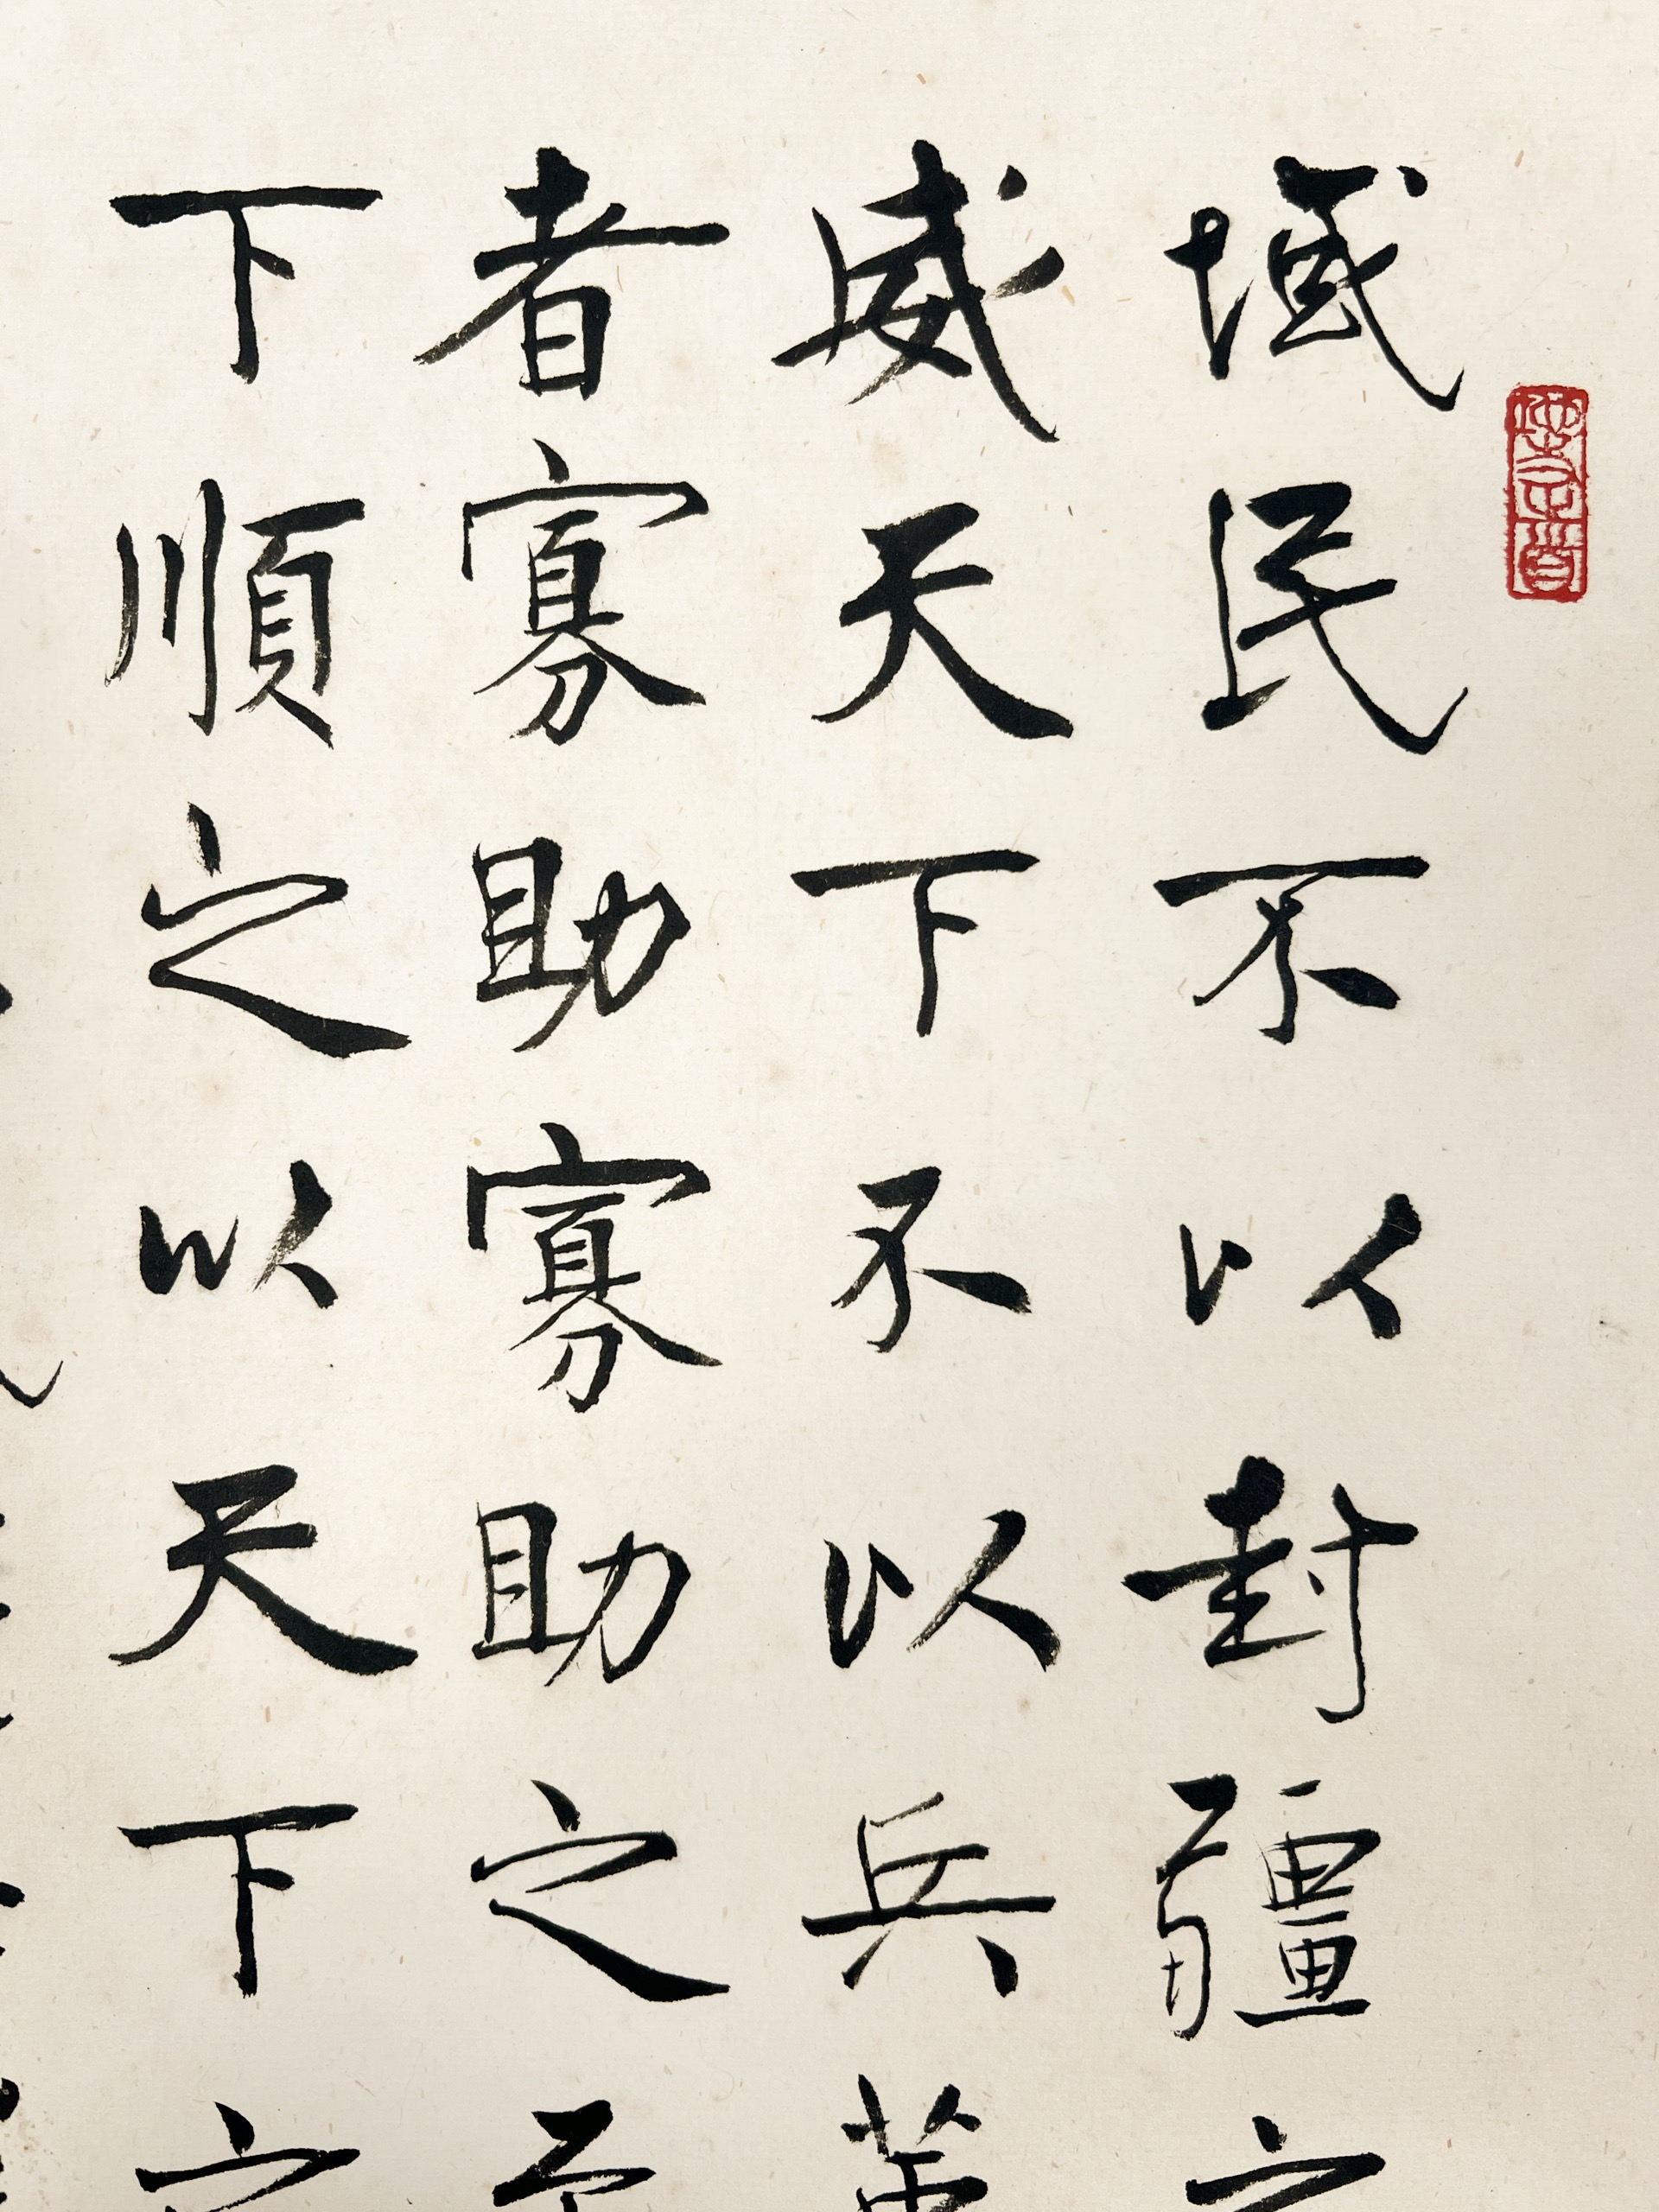 域民不以封疆之
威天下不以兵革
者寡助寡助之至
下順之以天下之